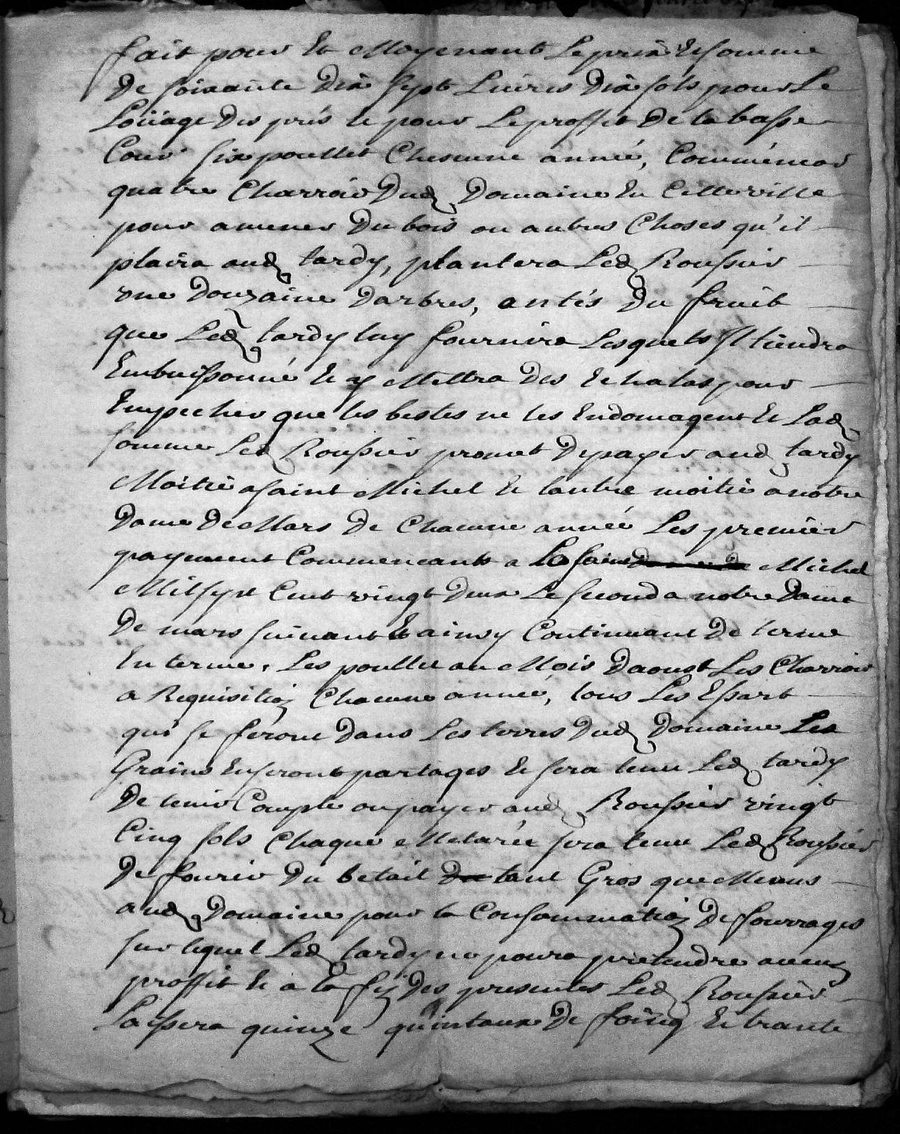 fait pour Et Moyenant Le prix Et somme
De soixante Dix sept Livres Dix sols pour Le
Loüage Des prés et pour Le proffit De la basse
Cour six poullet Chacune année,
quatre Charrois Dud Domaine En Cette ville
pour amener Du bois ou autres Choses qu'il
plaira aud tardy, plantera Led Roussier
une Douzaine Darbres, antés Du fruit
que Led tardy luy fournira Lesquels Il tiendra
Embuissonné Et y Mettra Des Echalas pour
Empecher que les bestes ne les Endomagent Et Lad
somme Led Roussier promet De payer aud tardy
Moitié a saint Michel Et lautre moitié a notre
Dame De Mars De Chacune année Les premier
payement Commencant a La saint Michel
Mil sept Cent vingt Deux Le second a notre Dame
De mars suivant Et ainsy Continuant De terme
En terme, Les poullet au Mois Daoust Les Charrois
a Requisition Chacune année, tous Les Essart
qui se feront Dans Les terres Dud Domaine Les
Grains En seront partagés Et sera tenu Led tardy
De tenir Compte ou payer aud Roussier vingt
Cinq sols Chaque sera tenu Led Roussier
De fournir Du betail tant Gros que Menus
aud Domaine pour la Consommation De fourrages
sur lequel Led tardy ne poura pretendre aucun
proffit Et a la fin Des presentes Led Roussier
Laissera quinze quintaux De foing Et trante